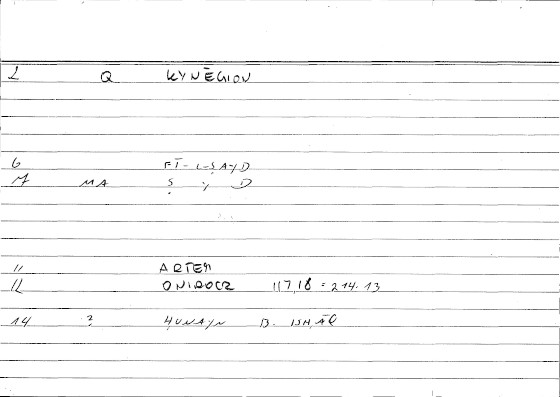 2 Q KYNĒGION
6 FĪ L-ṢAYD
7 MA Ṣ Y D
11 ARTEM
12 ONIROCR 117,18 = 214.13
14 ? ḤUNAYN B. ISḤĀQ